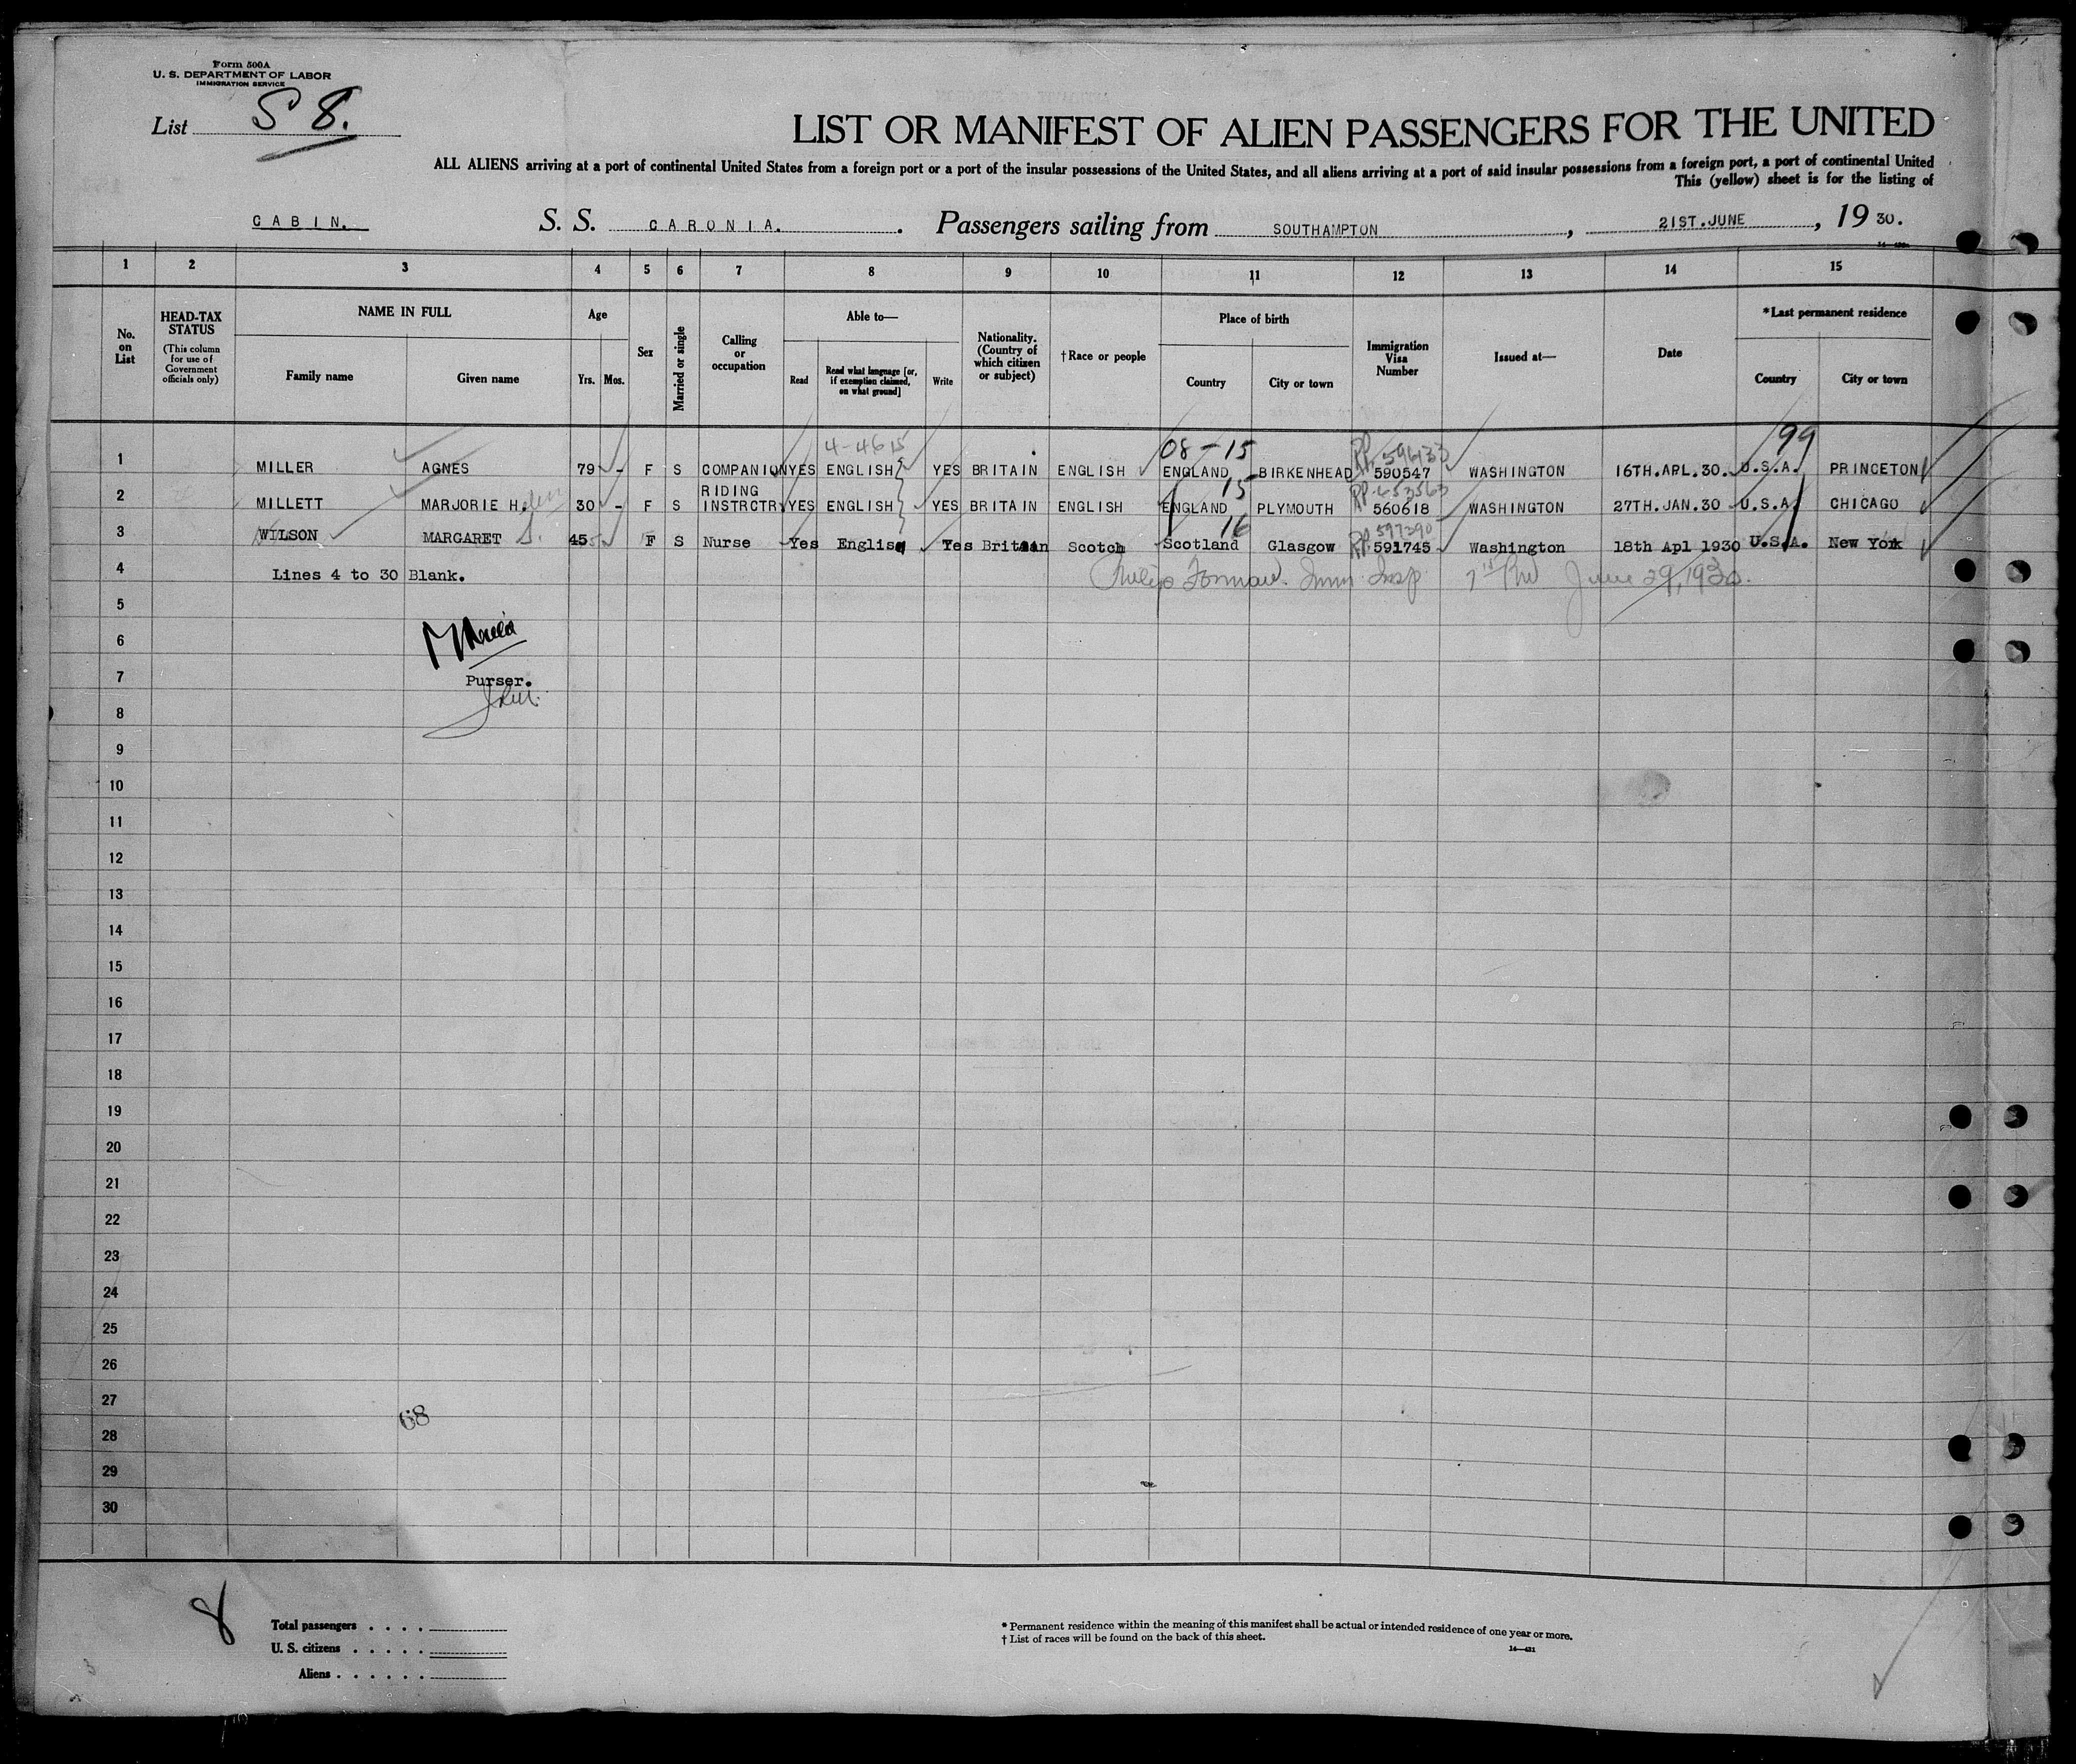 Form 500A
U. S. DEPARTMENT OF LABOR
IMMIGRATION SERVICE
List S 8.
LIST OR MANIFEST OF ALIEN PASSENGERS FOR THE UNITED
ALL ALIENS arriving at a port of continental United States from a foreign port or a port of the insular possessions of the United States, and all aliens arriving at a port of said insular possessions from a foreign port, a port of continental United
This (yellow) sheet is for the listing of
CABIN. S. S. CARONIA. Passengers sailing from SOUTHAMPTON, 21ST.JUNE, 19 30.
1 2 3 4 5 6 7 8 9 10 11 12 13 14 15
No. on List
HEAD-TAX STATUS (This column for use of Government officials only)
NAME IN FULL
Family name Given name
Age
Yrs. Mos.
Sex
Married or single
Calling or occupation
Able to—
Read Read what language [or, if exemption claimed, on what ground] Write
Nationality. (Country of which citizen or subject)
†Race or people
Place of birth
Country City or town
Immigration Visa Number
Issued at—
Date
*Last permanent residence
Country City or town
4-4615 08-15 RP. 99
1 MILLER AGNES 79 - F S COMPANION YES ENGLISH YES BRITAIN ENGLISH ENGLAND BIRKENHEAD 590547 WASHINGTON 16TH.APL.30. U.S.A. PRINCETON
15 RP. 453563
2 MILLETT MARJORIE H. 30 - F S RIDING INSTRCTR YES ENGLISH YES BRITAIN ENGLISH ENGLAND PLYMOUTH 560618 WASHINGTON 27TH.JAN.30 U.S.A. CHICAGO
16 597390
3 WILSON MARGARET S. 45 F S Nurse Yes English Yes Britain Scotch Scotland Glasgow RP. 591745 Washington 18th Apl 1930 U.S.A. New York
4 Lines 4 to 30 Blank. Imm. Insp June 29, 1930.
5
6
7 Purser.
8
9
10
11
12
13
14
15
16
17
18
19
20
21
22
23
24
25
26
27
68
28
29
30
8
Total passengers . . . .
U. S. citizens . . . . .
Aliens . . . . . .
* Permanent residence within the meaning of this manifest shall be actual or intended residence of one year or more.
† List of races will be found on the back of this sheet.
14—431
3